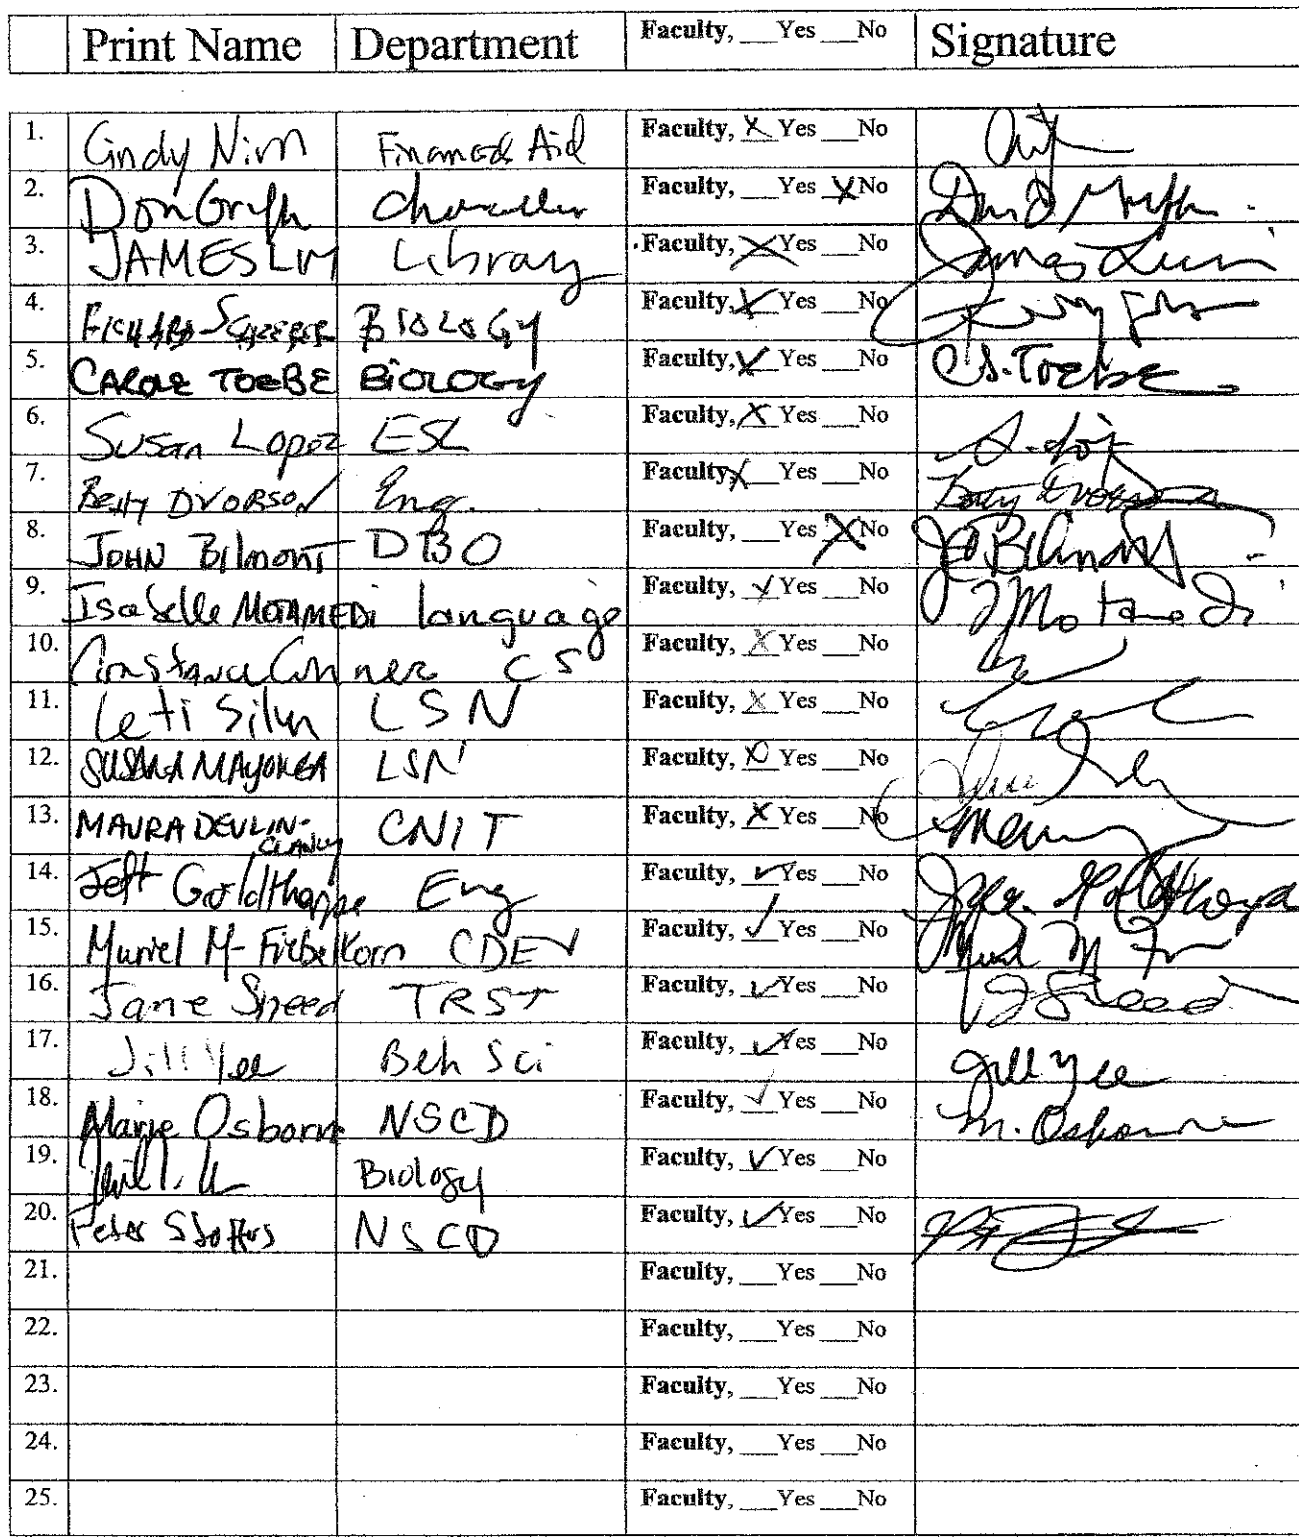 Print Name Department Faculty, ___Yes ___No Signature
1. Cindy Nim Financial Aid Faculty, X Yes ___No
2. Don Griffin Chancellor Faculty, ___Yes X No
3. JAMES LIM Library Faculty, X Yes ___No James Lim
4. BIOLOGY Faculty, X Yes ___No
5. CAROLE TOEBE BIOLOGY Faculty, X Yes ___No C.S. Toebe
6. Susan Lopez ESL Faculty, X Yes ___No
7. Betty DVORSON Eng. Faculty, X Yes ___No Betty Dvorson
8. JOHN Bilmont DBO Faculty, ___Yes X No J Bilmont
9. Isabelle MOTAMEDi language Faculty, X Yes ___No I Motamedi
10. Constance Conner CS Faculty, X Yes ___No
11. Leti Silva LSN Faculty, X Yes ___No
12. SUSANA MAYORGA LSN Faculty, X Yes ___No
13. MAURA DEVLIN-CLANCY CNIT Faculty, X Yes ___No
14. Jeff Goldthorpe Eng Faculty, ✓ Yes ___No Jeff Goldthorpe
15. Muriel M-Fiebelkorn CDEV Faculty, ✓ Yes ___No
16. Jane Sneed TRST Faculty, ✓ Yes ___No J Sneed
17. Jill Yee Beh Sci Faculty, ✓ Yes ___No Jill Yee
18. Marie Osborne NSCD Faculty, ✓ Yes ___No M. Osborne
19. Biology Faculty, ✓ Yes ___No
20. Peter Stoffers NSCD Faculty, ✓ Yes ___No
21. Faculty, ___Yes ___No
22. Faculty, ___Yes ___No
23. Faculty, ___Yes ___No
24. Faculty, ___Yes ___No
25. Faculty, ___Yes ___No